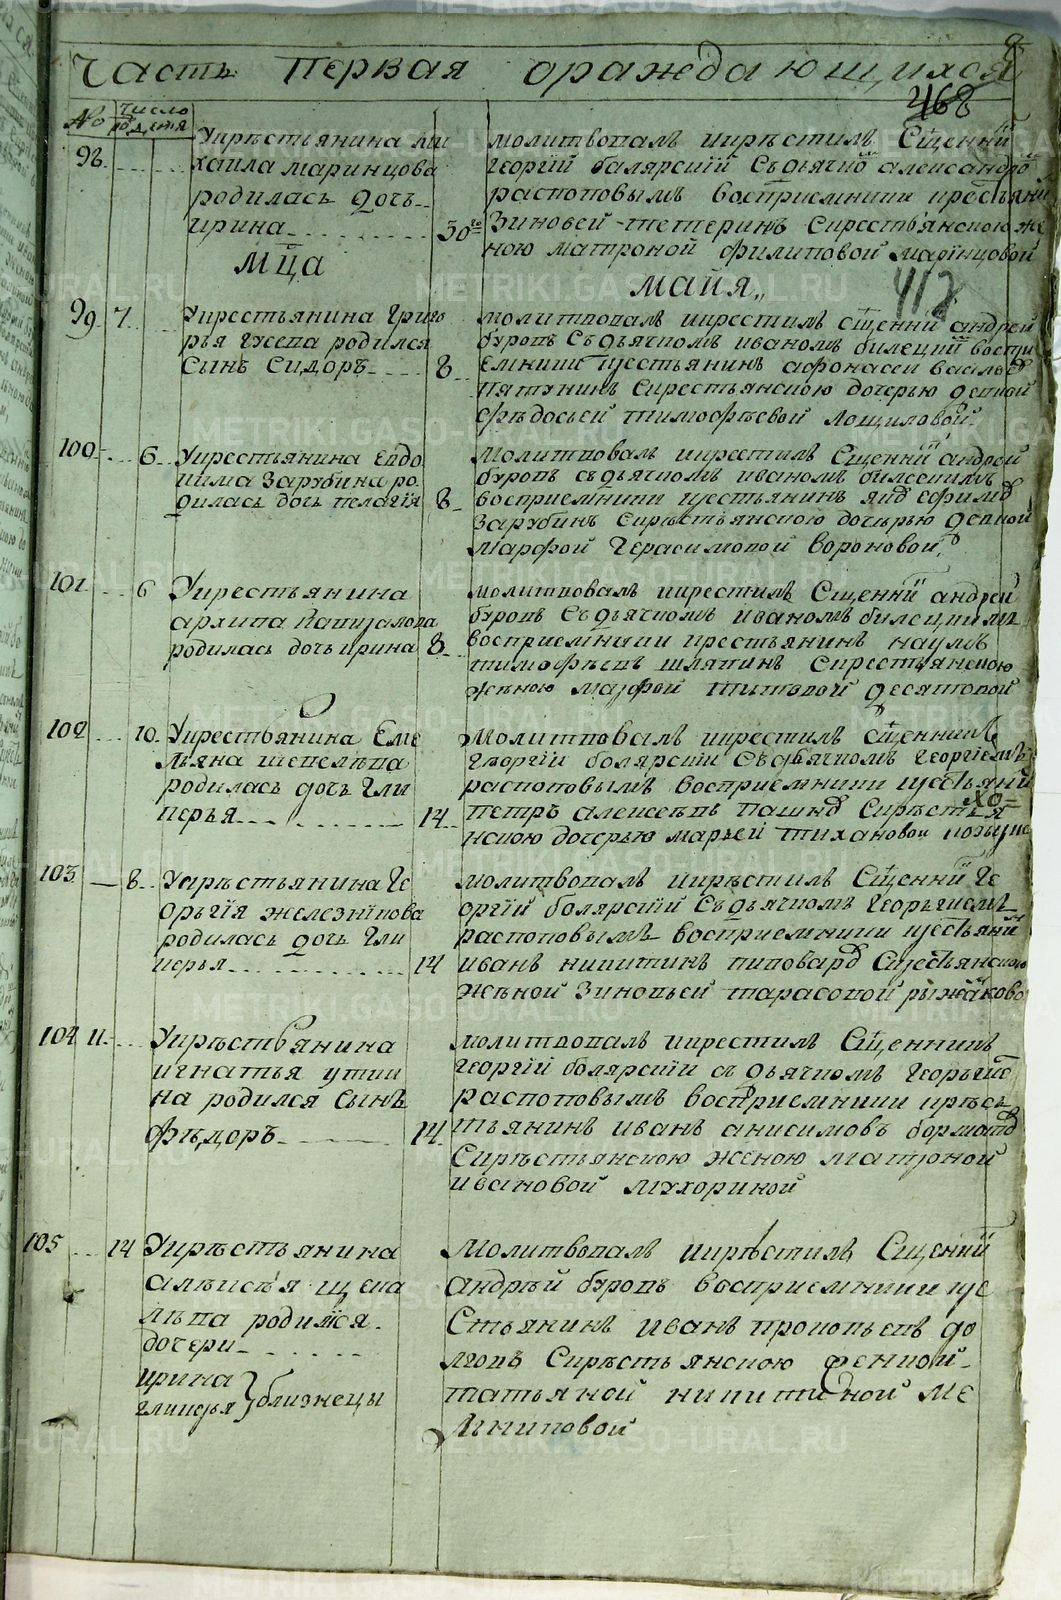 Часть первая ораждающихся
468
№
число рождетя
98
Укрѣстьянина ми
хаила маринцова
родилась дочь
ирина
30
молитвовалъ икрѣстилъ Сщенній
георгій балярскій Сдьячко александро
распоповымъ восприемники крестьяни
Зиновей тетеринъ Скрестьянскою же
ною матроной филиповой маринцовой
Мца
майя
412
99
7
Укрестьянина Григо
рья гусева родился
сынъ Сидоръ
8
молитвовалъ икрестилъ сщенни андрей
буровъ Сдьячкомъ иваномъ билецкий воспри
емники крестьянинъ афонасеи василье
Пятунинъ Скрестьянскою дочерью девкой
Фѣдосьей тимофѣевой Лощиловой
100
6
Укрестьянина Евдо
кима Зарубина ро
дилась дочь пелагія
8
Молитвовалъ икрестилъ Сщенній андрей
буровъ сдьячкомъ иваномъ билскимъ
восприемники крестьянинъ ефимъ
Зарубинъ Скрѣстьянскою дочѣрью девкой
Марфой Герасимовой вороновой
101
6
Укрестьянина
архипа
родилась дочь ирина
8
молитвовалъ икрестилъ Сщенній андрей
буровъ Сдьячкомъ иваномъ билецкимъ
восприемники крестьянинъ наумъ
тимофѣевъ шляпинъ Скрестьянскою
жѣною марфой титовой десятовой
102
10
Укрестьянина Еме
льяна шепелева
родилась дочь гли
керья
14
Молитвовалъ икрестилъ сщенникъ
гѣоргіи болярскіи Сдьячкомъ Георгіемъ
распоповымъ восприемники крестьяни
петръ алексеевъ Скрѣстья
нскою дочерью марьей тихановои
103
8
Укрѣстьянина Ге
орьгія железнікова
родилась дочь гли
керья
14
молитвовалъ икрѣстилъ Сщенній Ге
оргій болярскіи Сдьячкомъ Георьгиемъ
распоповымъ восприемники крестьяни
иванъ никитинъ пивоваръ Скрестьянскою
жѣной Зиновьей тарасовой рыжаково
104
11
Укрѣстьянина
игнатья утки
на родился Сынъ
Фѣдоръ
14
молитвовалъ икрестилъ Сщенникъ
георгій болярскіи сдьячкомъ Георьгие
распоповымъ восприемники крѣсь
тьянинъ иванъ анисимовъ
Скрѣстьянскою женою матроной
ивановой мухориной
105
14
Укрѣстьянина
алѣксѣя щепа
лѣва родился
дочери
ирина
гликерья
близнецы
Молитвовалъ икрѣстилъ Сщенній
андрѣй буровъ восприемники кре
Стьянинъ иванъ прокопьевъ до
лговъ Скрѣстьянскою женкой
татьяной никитиной ме
льниковой